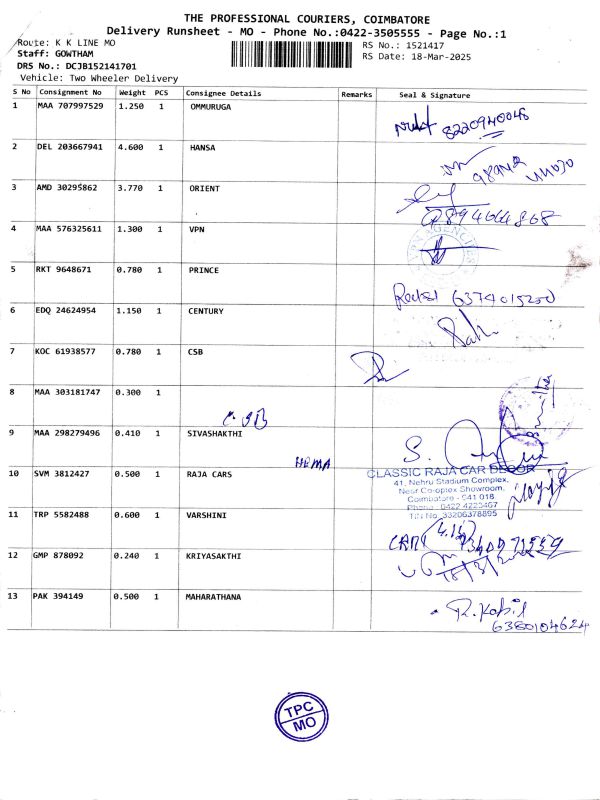 THE PROFESSIONAL COURIERS, COIMBATORE
Delivery Runsheet - MO - Phone No.:0422-3505555 - Page No.:1
Route: K K LINE MO
RS No.: 1521417
Staff: GOWTHAM
RS Date: 18-Mar-2025
DRS No.: DCJB152141701
Vehicle: Two Wheeler Delivery
S No Consignment No Weight PCS Consignee Details Remarks Seal & Signature
1 MAA 707997529 1.250 1 OMMURUGA
8220940046
2 DEL 203667941 4.600 1 HANSA
3 AMD 30295862 3.770 1 ORIENT
4 MAA 576325611 1.300 1 VPN
VPN AGENCIES
5 RKT 9648671 0.780 1 PRINCE
6374015250
6 EDQ 24624954 1.150 1 CENTURY
7 KOC 61938577 0.780 1 CSB
8 MAA 303181747 0.300 1
CSB
9 MAA 298279496 0.410 1 SIVASHAKTHI
HEMA
10 SVM 3812427 0.500 1 RAJA CARS
CLASSIC RAJA CAR DECOR
41, Nehru Stadium Complex,
Near Co-optex Showroom,
Coimbatore - 641 018.
Phone : 0422 4223467
TIN No. 33206378895
11 TRP 5582488 0.600 1 VARSHINI
12 GMP 878092 0.240 1 KRIYASAKTHI
13 PAK 394149 0.500 1 MAHARATHANA
R. Kabil
6380104624
TPC
MO